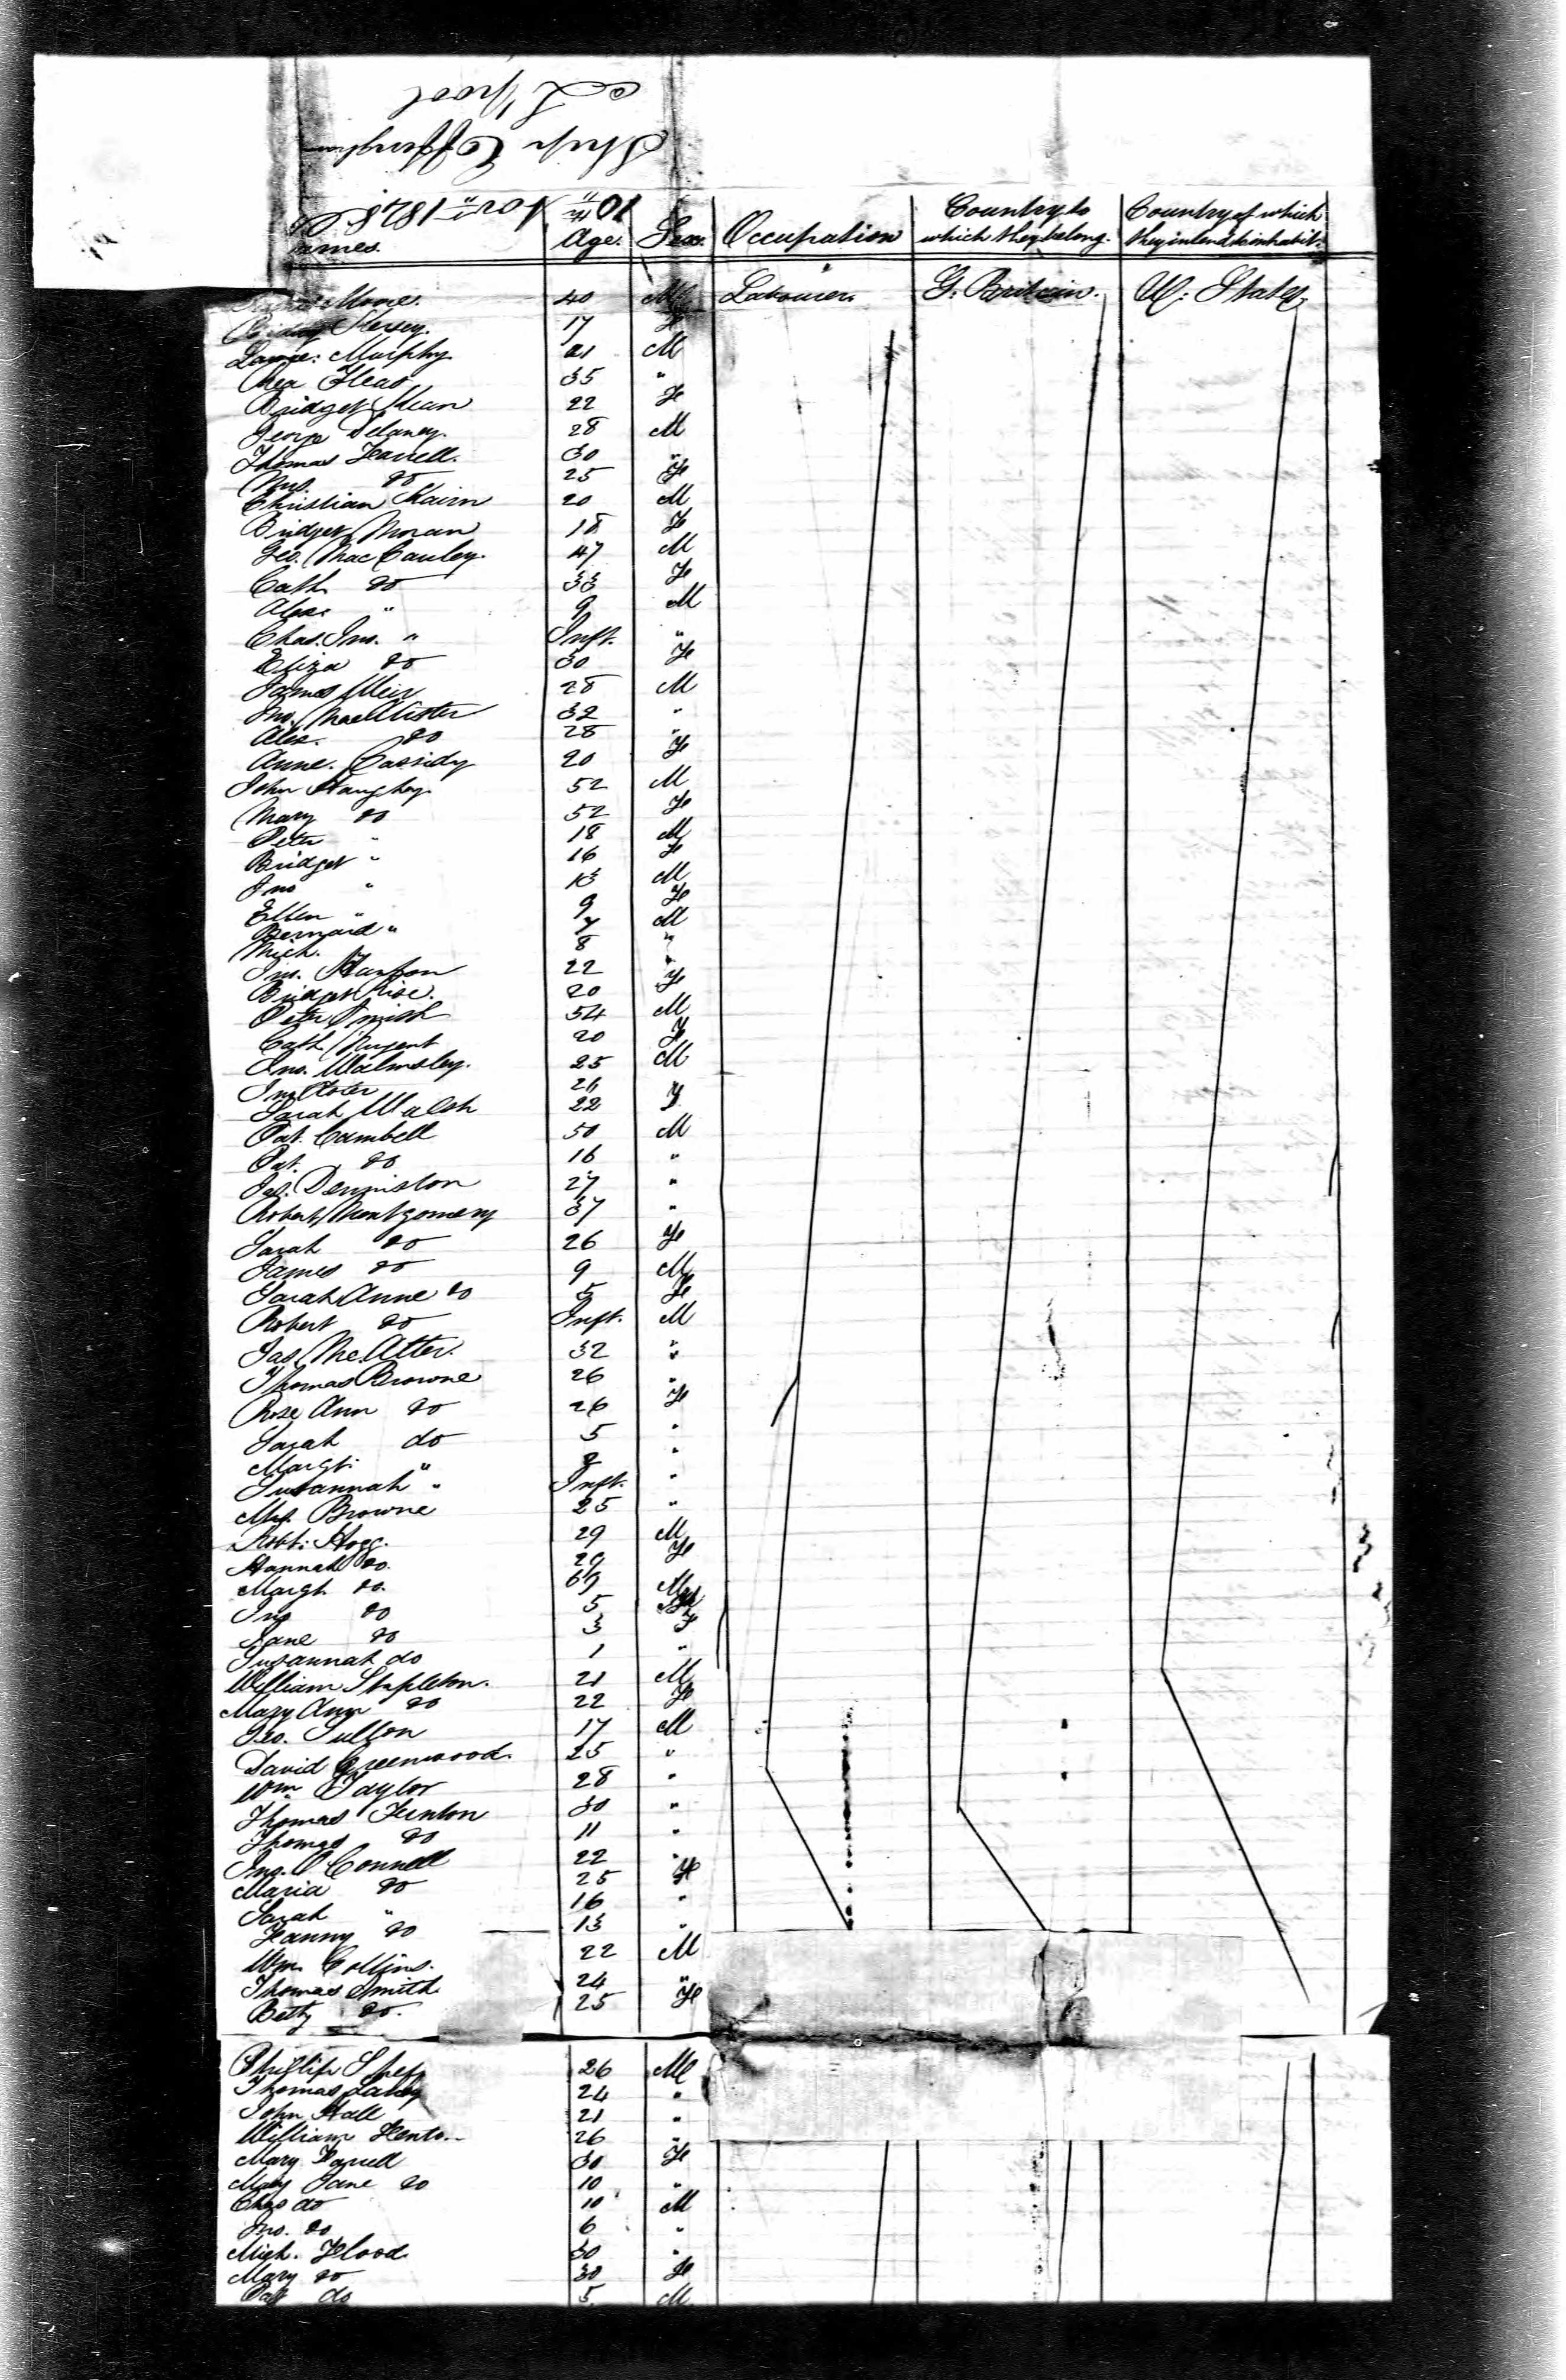 Ship Effingham
L'pool
10th Novr 1848
Names. Age. Sex. Occupation Country to which they belong. Country of which they intend to inhabit.
Moore. 40 M Labourer. G. Britain. U. States
Kersey. 17 Fe
Murphy 21 M
35 "
Bridget Kean 22 Fe
George Delaney. 28 M
Thomas Farrell. 30 "
Mrs. do 25 Fe
Christian Kairn 20 M
Bridget Moran 18 Fe
Geo. MacCauley. 47 M
Cath do 33 Fe
Alex. " 9 M
Chas. Jno. " Inft. "
Eliza do 30 Fe
James Weir 28 M
Jno. MacAllister 32 "
Alex. do 28 "
Anne. Cassidy 20 Fe
John Haughey 52 M
Mary do 52 Fe
Peter " 18 M
Bridget " 16 Fe
Jno " 13 M
Ellen " 9 Fe
Bernard " 7 M
Mich. 8 "
Jno. 22 "
Bridget 20 Fe
Peter Smith 54 M
Cath Nugent 20 Fe
Jno. Walmsley. 25 M
Jno 26
Sarah Walsh 22 F
Pat. Cambell 50 M
Pat. do 16 "
Jas. Denniston 27 "
Robert Montgomery 37 "
Sarah do 26 Fe
James do 9 M
Sarah Anne do 5 Fe
Robert do Inft. M
Jas McAtter. 32 "
Thomas Browne 26 "
Rose Ann do 26 Fe
Sarah do 5 "
Margt. " 2 "
Susannah " Inft. "
Mrs Browne 25 "
Robt. Hogg. 29 M
Hannah do. 29 Fe
Margt do.
Jno do 5
Jane do 3 F
Susannah do 1 "
William Stapleton. 21 M
Mary Ann do 22 Fe
Geo. Fulton 17 M
David Greenwood. 25 "
Wm Taylor 28 "
Thomas Fenton 30 "
Thomas do 11 "
Jno. O'Connell 22 "
Maria do 25 Fe
Sarah " 16 "
Fanny do 13 "
Wm. Collins. 22 M
Thomas Smith 24 "
Betty do. 25 Fe
Phillip 26 M
Thomas 24 "
John Hall 21 "
William 26 "
Mary Farrell 30 Fe
Mary Jane do 10 "
Chas do 10 M
Jno. do 6 "
Mich. Flood. 30 "
Mary do 30 Fe
Pat do 5 M